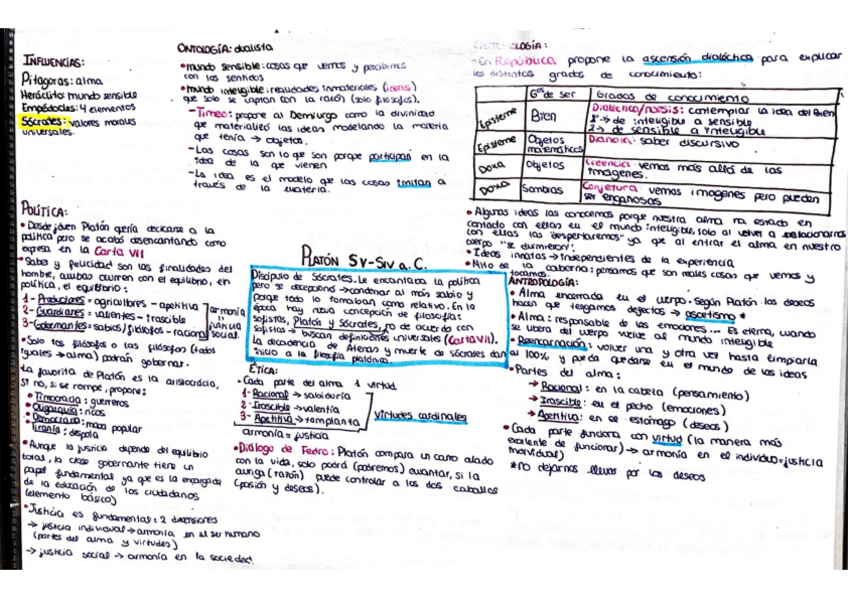 INFLUENCIAS:
Pitágoras: alma
Heráclito: mundo sensible
Empédocles: 4 elementos
Sócrates: valores morales
universales.
ONTOLOGÍA: dualista
• mundo sensible: cosas que vemos y percibimos
con los sentidos
• mundo inteligible: realidades inmateriales (ideas)
que solo se captan con la razón (solo filósofos).
- Timeo: propone al Demiurgo como la divinidad
que materializó las ideas modelando la materia
que tenía → objetos.
- Las cosas son lo que son porque participan en la
idea de la que vienen
- La idea es el modelo que las cosas imitan a
través de la materia.
OLOGÍA:
- En República propone la ascensión dialéctica para explicar
los distintos grados de conocimiento:
Gºs de ser Grados de conocimiento
Episteme Bien Dialéctica/noesis: contemplar la idea del Bien
1º → de inteligible a sensible
2 → de sensible a inteligible
Episteme Objetos matemáticos Dianoia: saber discursivo
Doxa Objetos Creencia vemos más allá de las
imágenes.
Doxa Sombras Conjetura vemos imágenes pero pueden
ser engañosas
• Algunas ideas las conocemos porque nuestra alma ha estado en
contacto con ellas en el mundo inteligible, solo al volver a relacionarnos
con ellas las "despertaremos" ya que al entrar el alma en nuestro
cuerpo "se durmieron".
• Ideas innatas → independientes de la experiencia
• Mito de la caberna: pensamos que son reales cosas que vemos y
tocamos.
POLÍTICA:
• Desde joven Platón quería dedicarse a la
política pero se acabó desencantando como
expresa en la Carta VII
• Saber y felicidad son las finalidades del
hombre, ambas ocurren con el equilibrio, en
política, el equilibrio:
1- Productores = agricultores - apetitiva
2- Guardianes = valientes - irascible
3- Gobernantes = sabios/filósofos - racional
armonía
justicia
social.
• Solo los filósofos o las filósofas (todos
iguales → alma) podrán gobernar.
La favorita de Platón es la aristocracia,
si no, si se rompe, propone:
• Timocracia: guerreros
• Oligarquía: ricos
• Democracia: masa popular
• Tiranía: déspota
• Aunque la justicia depende del equilibrio
total, la clase gobernante tiene un
papel fundamental ya que es la encargada
de la educación de los ciudadanos
(elemento básico)
• Justicia es fundamental: 2 dimensiones
→ justicia individual → armonía en el ser humano
(partes del alma y virtudes)
→ justicia social → armonía en la sociedad.
PLATÓN SV-SIV a.C.
Discípulo de Sócrates. Le encantaba la política
pero se decepcionó → condenar al más sabio y
porque todo lo tomaban como relativo. En la
época hay nueva concepción de filosofía:
sofistas, Platón y Sócrates, no de acuerdo con
sofistas → buscan definiciones universales (Carta VII).
La decadencia de Atenas y muerte de Sócrates dan
inicio a la filosofía platónica.
ÉTICA:
• Cada parte del alma 1 virtud
1- Racional → sabiduría
2- Irascible → valentía
3- Apetitiva → templanza
virtudes cardinales
armonía = justicia
• Diálogo de Fedro: Platón compara un carro alado
con la vida, solo podrá (podremos) avanzar, si la
auriga (razón) puede controlar a los dos caballos
(pasión y deseos).
ANTROPOLOGÍA:
• Alma encerrada en el cuerpo. Según Platón los deseos
hacen que tengamos defectos → ascetismo *
• Alma: responsable de las emociones... Es eterna, cuando
se libera del cuerpo vuelve al mundo inteligible
• Reencarnación: volver una y otra vez hasta limpiarla
al 100% y pueda quedarse en el mundo de las ideas
• Partes del alma:
→ Racional: en la cabeza (pensamiento)
→ Irascible: en el pecho (emociones)
→ Apetitiva: en el estómago (deseos)
• Cada parte funciona con virtud (la manera más
excelente de funcionar) → armonía en el individuo = justicia
individual)
* no dejarnos llevar por los deseos